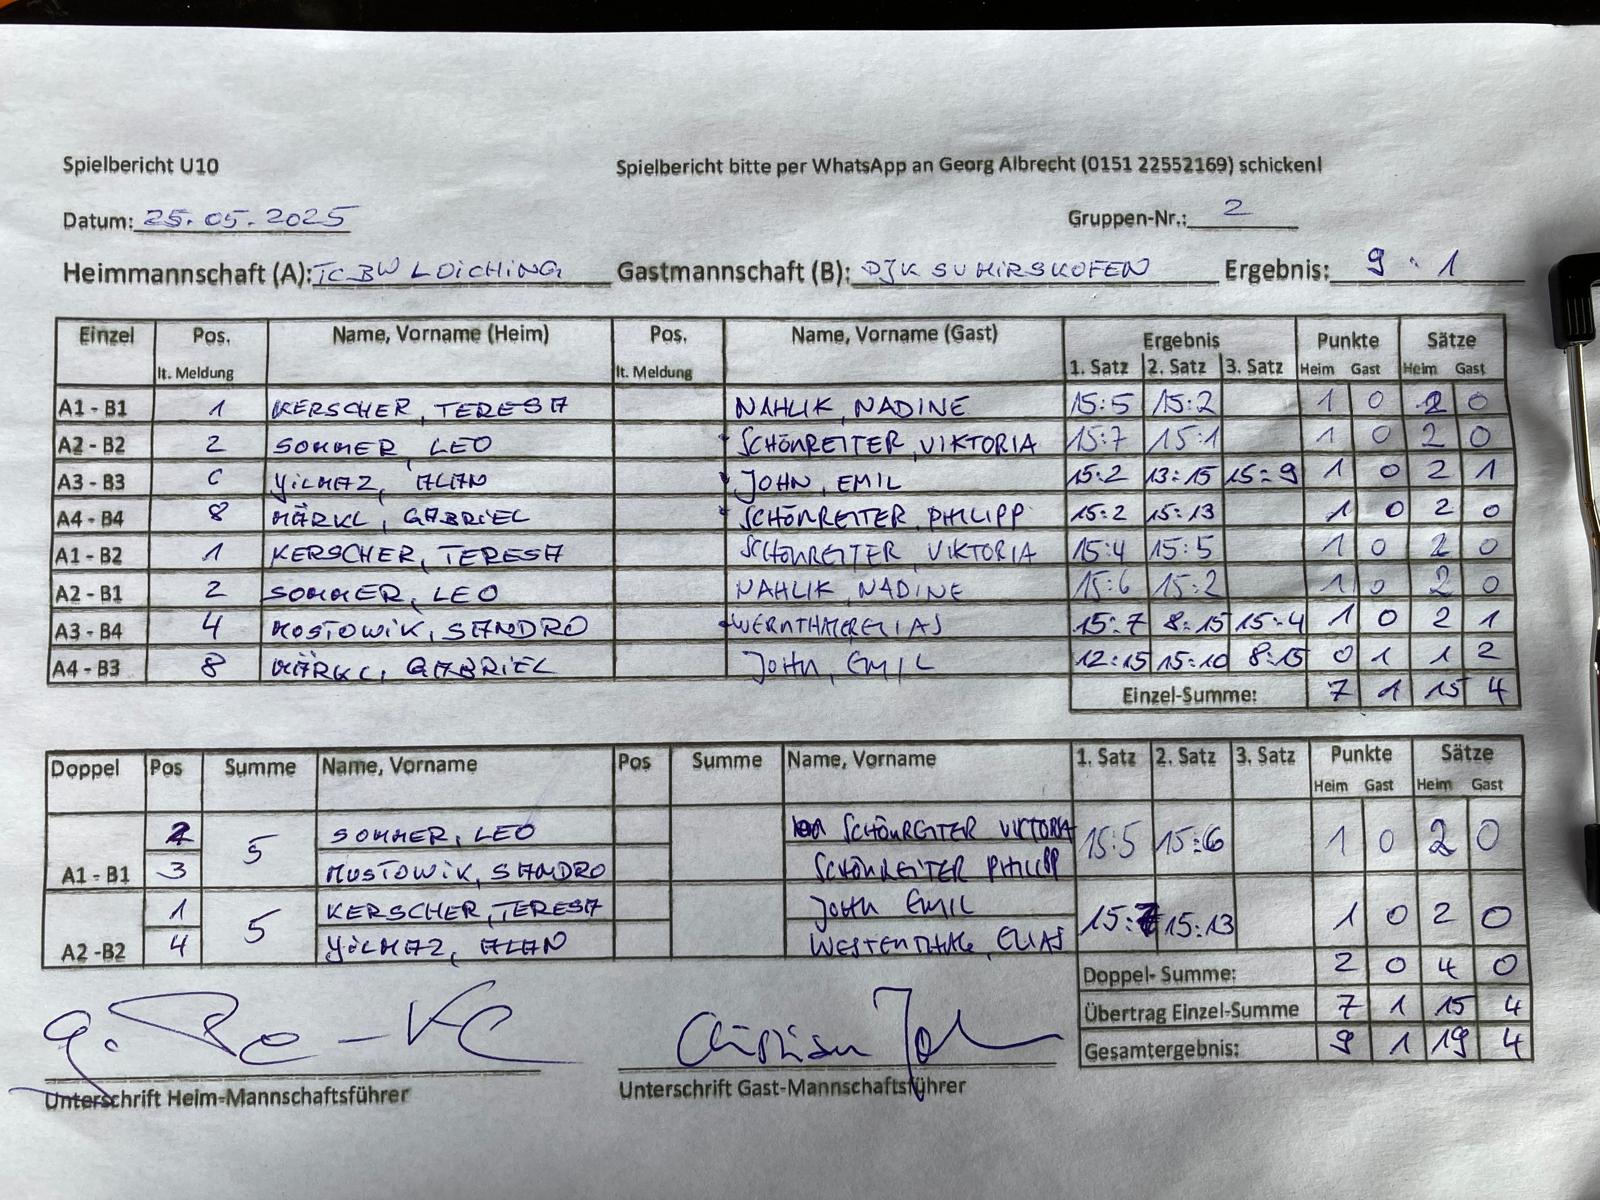 Spielbericht U10 Spielbericht bitte per WhatsApp an Georg Albrecht (0151 22552169) schicken!
Datum: 25.05.2025 Gruppen-Nr.: 2
Heimmannschaft (A): TC BW LOICHING Gastmannschaft (B): DJK SV HIRSKOFEN Ergebnis: 9:1
Einzel Pos. Name, Vorname (Heim) Pos. Name, Vorname (Gast) Ergebnis Punkte Sätze
lt. Meldung lt. Meldung 1. Satz 2. Satz 3. Satz Heim Gast Heim Gast
A1 - B1 1 KERSCHER, TERESA NAHLIK, NADINE 15:5 15:2 1 0 2 0
A2 - B2 2 SOMMER, LEO SCHÖNREITER, VIKTORIA 15:7 15:1 1 0 2 0
A3 - B3 YILMAZ, ALAN JOHN, EMIL 15:2 13:15 15:9 1 0 2 1
A4 - B4 8 MÄRKL, GABRIEL SCHÖNREITER, PHILIPP 15:2 15:13 1 0 2 0
A1 - B2 1 KERSCHER, TERESA SCHÖNREITER, VIKTORIA 15:4 15:5 1 0 2 0
A2 - B1 2 SOMMER, LEO NAHLIK, NADINE 15:6 15:2 1 0 2 0
A3 - B4 4 MOSTOWIK, SANDRO 15:7 8:15 15:4 1 0 2 1
A4 - B3 8 MÄRKL, GABRIEL JOHN, EMIL 12:15 15:10 8:15 0 1 1 2
Einzel-Summe: 7 1 15 4
Doppel Pos Summe Name, Vorname Pos Summe Name, Vorname 1. Satz 2. Satz 3. Satz Punkte Sätze
Heim Gast Heim Gast
2 SOMMER, LEO SCHÖNREITER VIKTORIA
A1 - B1 3 5 MOSTOWIK, SANDRO SCHÖNREITER PHILIPP 15:5 15:6 1 0 2 0
1 KERSCHER, TERESA JOHN EMIL
A2 -B2 4 5 YILMAZ, ALAN ELIAS 15:7 15:13 1 0 2 0
Doppel- Summe: 2 0 4 0
Übertrag Einzel-Summe 7 1 15 4
Gesamtergebnis: 9 1 19 4
Christian John
Unterschrift Heim-Mannschaftsführer Unterschrift Gast-Mannschaftsführer